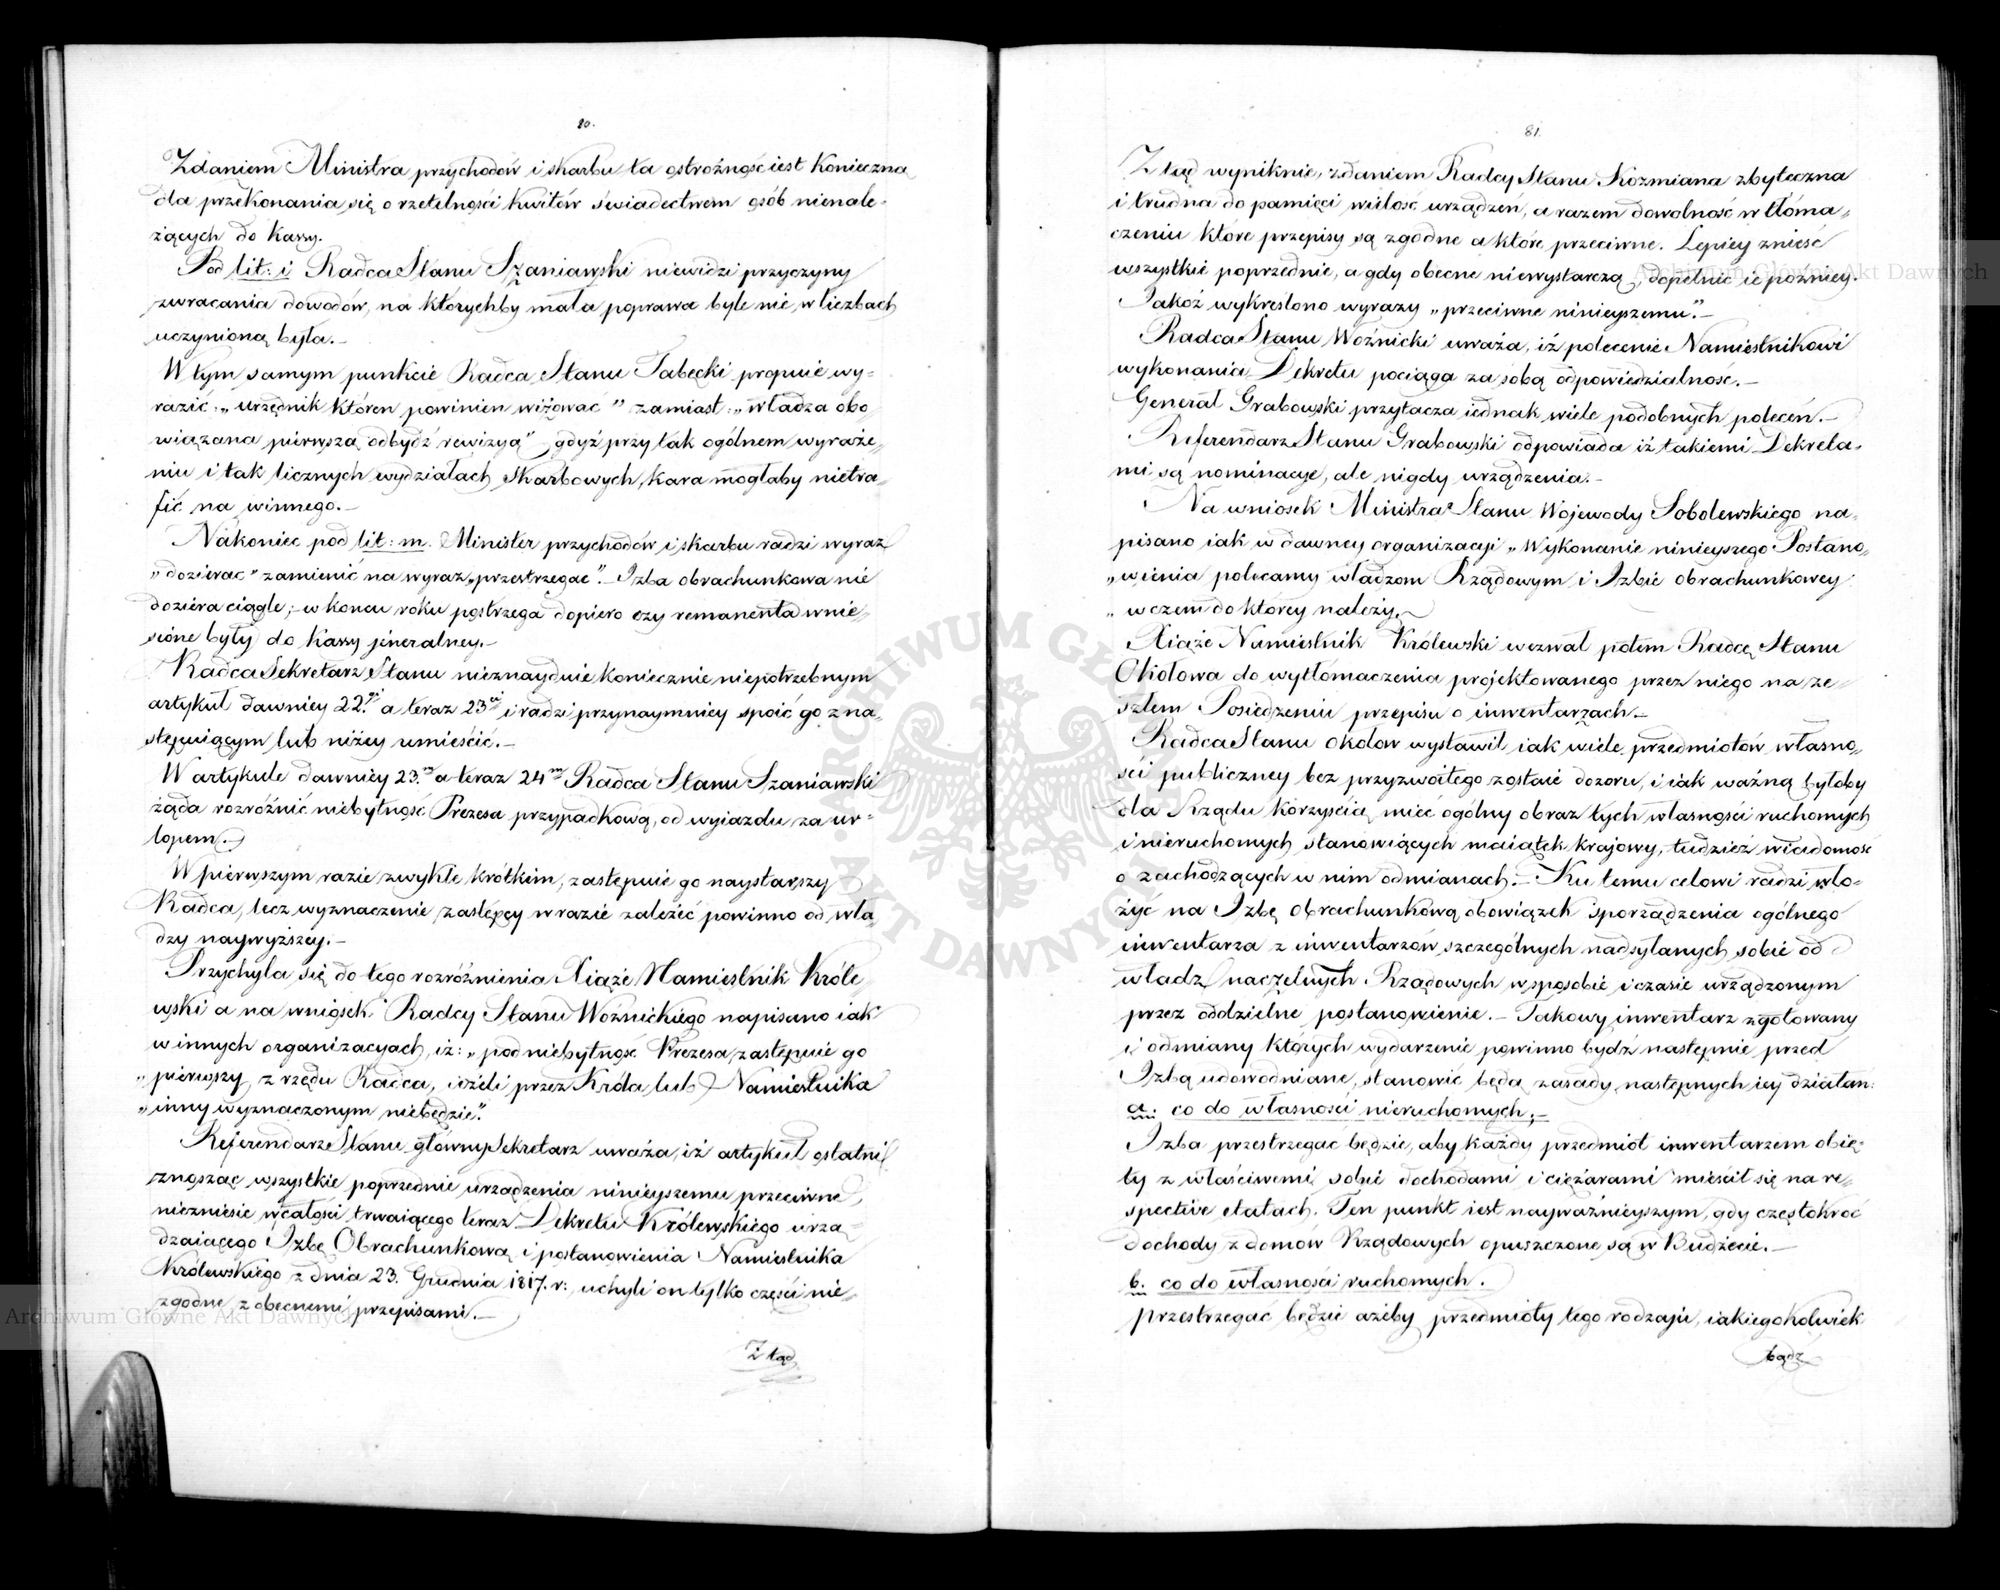 80.
Zdaniem Ministra przychodów i skarbu ta ostrożność iest konieczna
dla przekonania się o rzetelności kwitów świadectwem osób nienale-
żących do kassy.
Pod lit: i Radca Stanu Szaniawski niewidzi przyczyny
zwracania dowodów, na którychby mała poprawa byle nie w liczbach
uczynioną była.-
W tym samym punkcie Radca Stanu Tabęcki propnuie wy-
razić: „urzędnik któren powinien wizować" zamiast: „władza obo-
wiązana pierwszą odbydź rewizyą" gdyż przy tak ogólnem wyraże-
niu i tak licznych wydziałach skarbowych, kara mogłaby nietra-
fić na winnego.-
Nakoniec pod lit: m. Minister przychodów i skarbu radzi wyraz
„dozierać" zamienić na wyraz „przestrzegać".- Izba obrachunkowa nie
doziera ciągle; w koncu roku postrzega dopiero czy remanenta wnie-
sione były do kassy jeneralney.-
Radca Sekretarz Stanu nieznayduie koniecznie niepotrzebnym
artykuł dawniey 22gi a teraz 23ci i radzi przynaymniey spoić go z na-
stępuiącym lub niżey umieścić.-
W artykule dawniey 23.m a teraz 24m Radca Stanu Szaniawski
żąda rozróżnić niebytność Prezesa przypadkową, od wyiazdu za ur-
lopem.-
W pierwszym razie zwykle krótkim, zastępuie go naystarszy
Radca, lecz wyznaczenie zastępcy w razie zależeć powinno od wła-
dzy naywyższey.-
Przychyla się do tego rozróżnienia Xiąże Namiestnik Króle-
wski a na wniosek Radcy Stanu Woźnickiego napisano iak
w innych organizacyach, iż: „pod niebytność Prezesa, zastępuie go
„pierwszy z rzędu Radca, ieżeli przez Króla lub Namiestnika
„inny wyznaczonym niebędzie".
Referendarz Stanu główny Sekretarz uważa, iż artykuł ostatni
znosząc wszystkie poprzednie urządzenia ninieyszemu przeciwne,
niezniesie w całości trwaiącego teraz Dekretu Królewskiego urzą-
dzaiącego Izbę Obrachunkową i postanowienia Namiestnika
Królewskiego z dnia 23. Grudnia 1817. r:, uchyli on tylko części nie-
zgodne z obecnemi przepisami.-
Ztąd
81.
Ztąd wyniknie, zdaniem Radcy Stanu Kozmiana zbyteczna
i trudna do pamięci wielość urządzeń, a razem dowolność w tłóma-
czeniu które przepisy są zgodne a które przeciwne. Lepiey znieść
wszystkie poprzednie, a gdy obecne niewystarczą, dopełnić ie poźniey.
Jakoż wykreślono wyrazy „przeciwne ninieyszemu".-
Radca Stanu Woźnicki uważa, iż polecenie Namiestnikowi
wykonania Dekretu pociąga za sobą odpowiedzialność.-
Generał Grabowski przytacza iednak wiele podobnych poleceń.-
Referendarz Stanu Grabowski odpowiada iż takiemi Dekreta-
mi są nominacye, ale nigdy urządzenia.-
Na wniosek Ministra Stanu Wojewody Sobolewskiego na-
pisano iak w dawney organizacyi „Wykonanie ninieyszego Postano-
„wienia polecamy władzom Rządowym i Izbie obrachunkowey
„w czem do którey należy.
Xiąże Namiestnik Królewski wezwał potem Radcę Stanu
Okołowa do wytłomaczenia projektowanego przez niego na ze-
szłem Posiedzeniu przepisu o inwentarzach.-
Radca Stanu Okołow wystawił iak wiele przedmiotów własno-
ści publiczney bez przyzwoitego zostaie dozoru, i iak ważną byłoby
dla Rządu korzyścią mieć ogólny obraz tych własności ruchomych
i nieruchomych stanowiących maiątek krajowy, tudzież wiadomość
o zachodzących w nim odmianach.- Ku temu celowi radzi wło-
żyć na Izbę obrachunkową obowiązek sporządzenia ogólnego
inwentarza z inwentarzów szczególnych nadsyłanych sobie od
władz naczelnych Rządowych w sposobie i czasie urządzonym
przez oddzielne postanowienie.- Takowy inwentarz zgotowany
i odmiany których wydarzenie powinno bydź następnie przed
Izbą udowodniane, stanowić będą zasady następnych iey działań:
a. co do własności nieruchomych;-
Izba przestrzegać będzie, aby każdy przedmiot inwentarzem obię-
ty z właściwemi sobie dochodami i ciężarami mieścił się na re-
spective etatach. Ten punkt iest nayważnieyszym, gdy częstokroć
dochody z domów Rządowych opuszczone są w Budżecie.-
b. co do własności ruchomych.
przestrzegać będzie ażeby przedmioty tego rodzaju, iakiegokolwiek
bądź